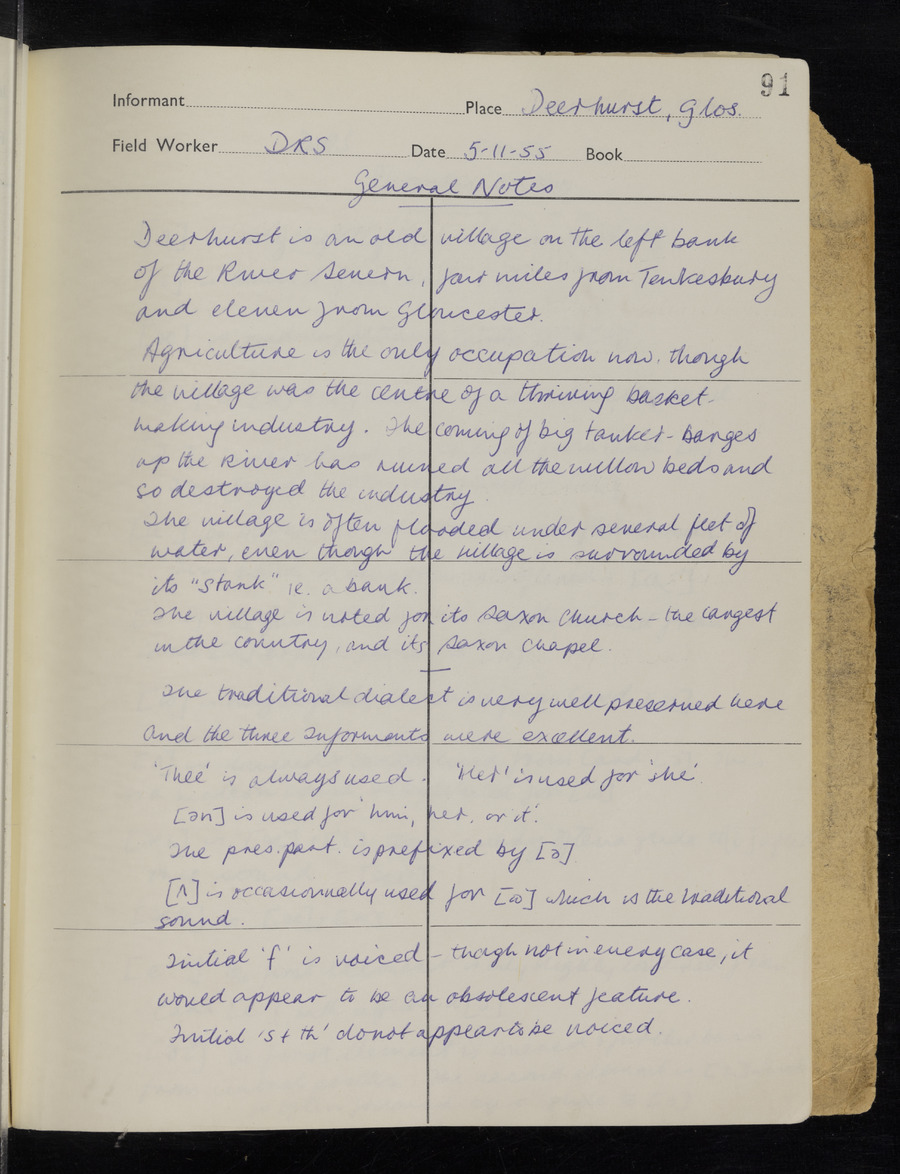 91
Informant Place Deerhurst, Glos.
Field Worker DRS Date 5-11-55 Book
General Notes
Deerhurst is an old village on the left bank
of the River Severn, four miles from Tewkesbury
and eleven from Gloucester.
Agriculture is the only occupation now. though
the village was the centre of a thriving basket-
making industry. The coming of big tanker-barges
up the River has ruined all the willow beds and
so destroyed the industry.
The village is often flooded under several feet of
water, even though the village is surrounded by
its "Stank" ie. a bank.
The village is noted for its Saxon Church - the largest
in the country, and its Saxon Chapel.
The traditional dialect is very well preserved here
and the three informants were excellent.
'Thee' is always used. 'Her' is used for 'she'
[ən] is used for 'him, her, or it'.
The pres. part. is prefixed by [ə]
[ʌ] is occasionnally used for [ɷ] which is the traditional
sound.
Initial 'f' is voiced - though not in every case, it
would appear to be an obsolescent feature.
Initial 's + th' do not appear to be voiced.